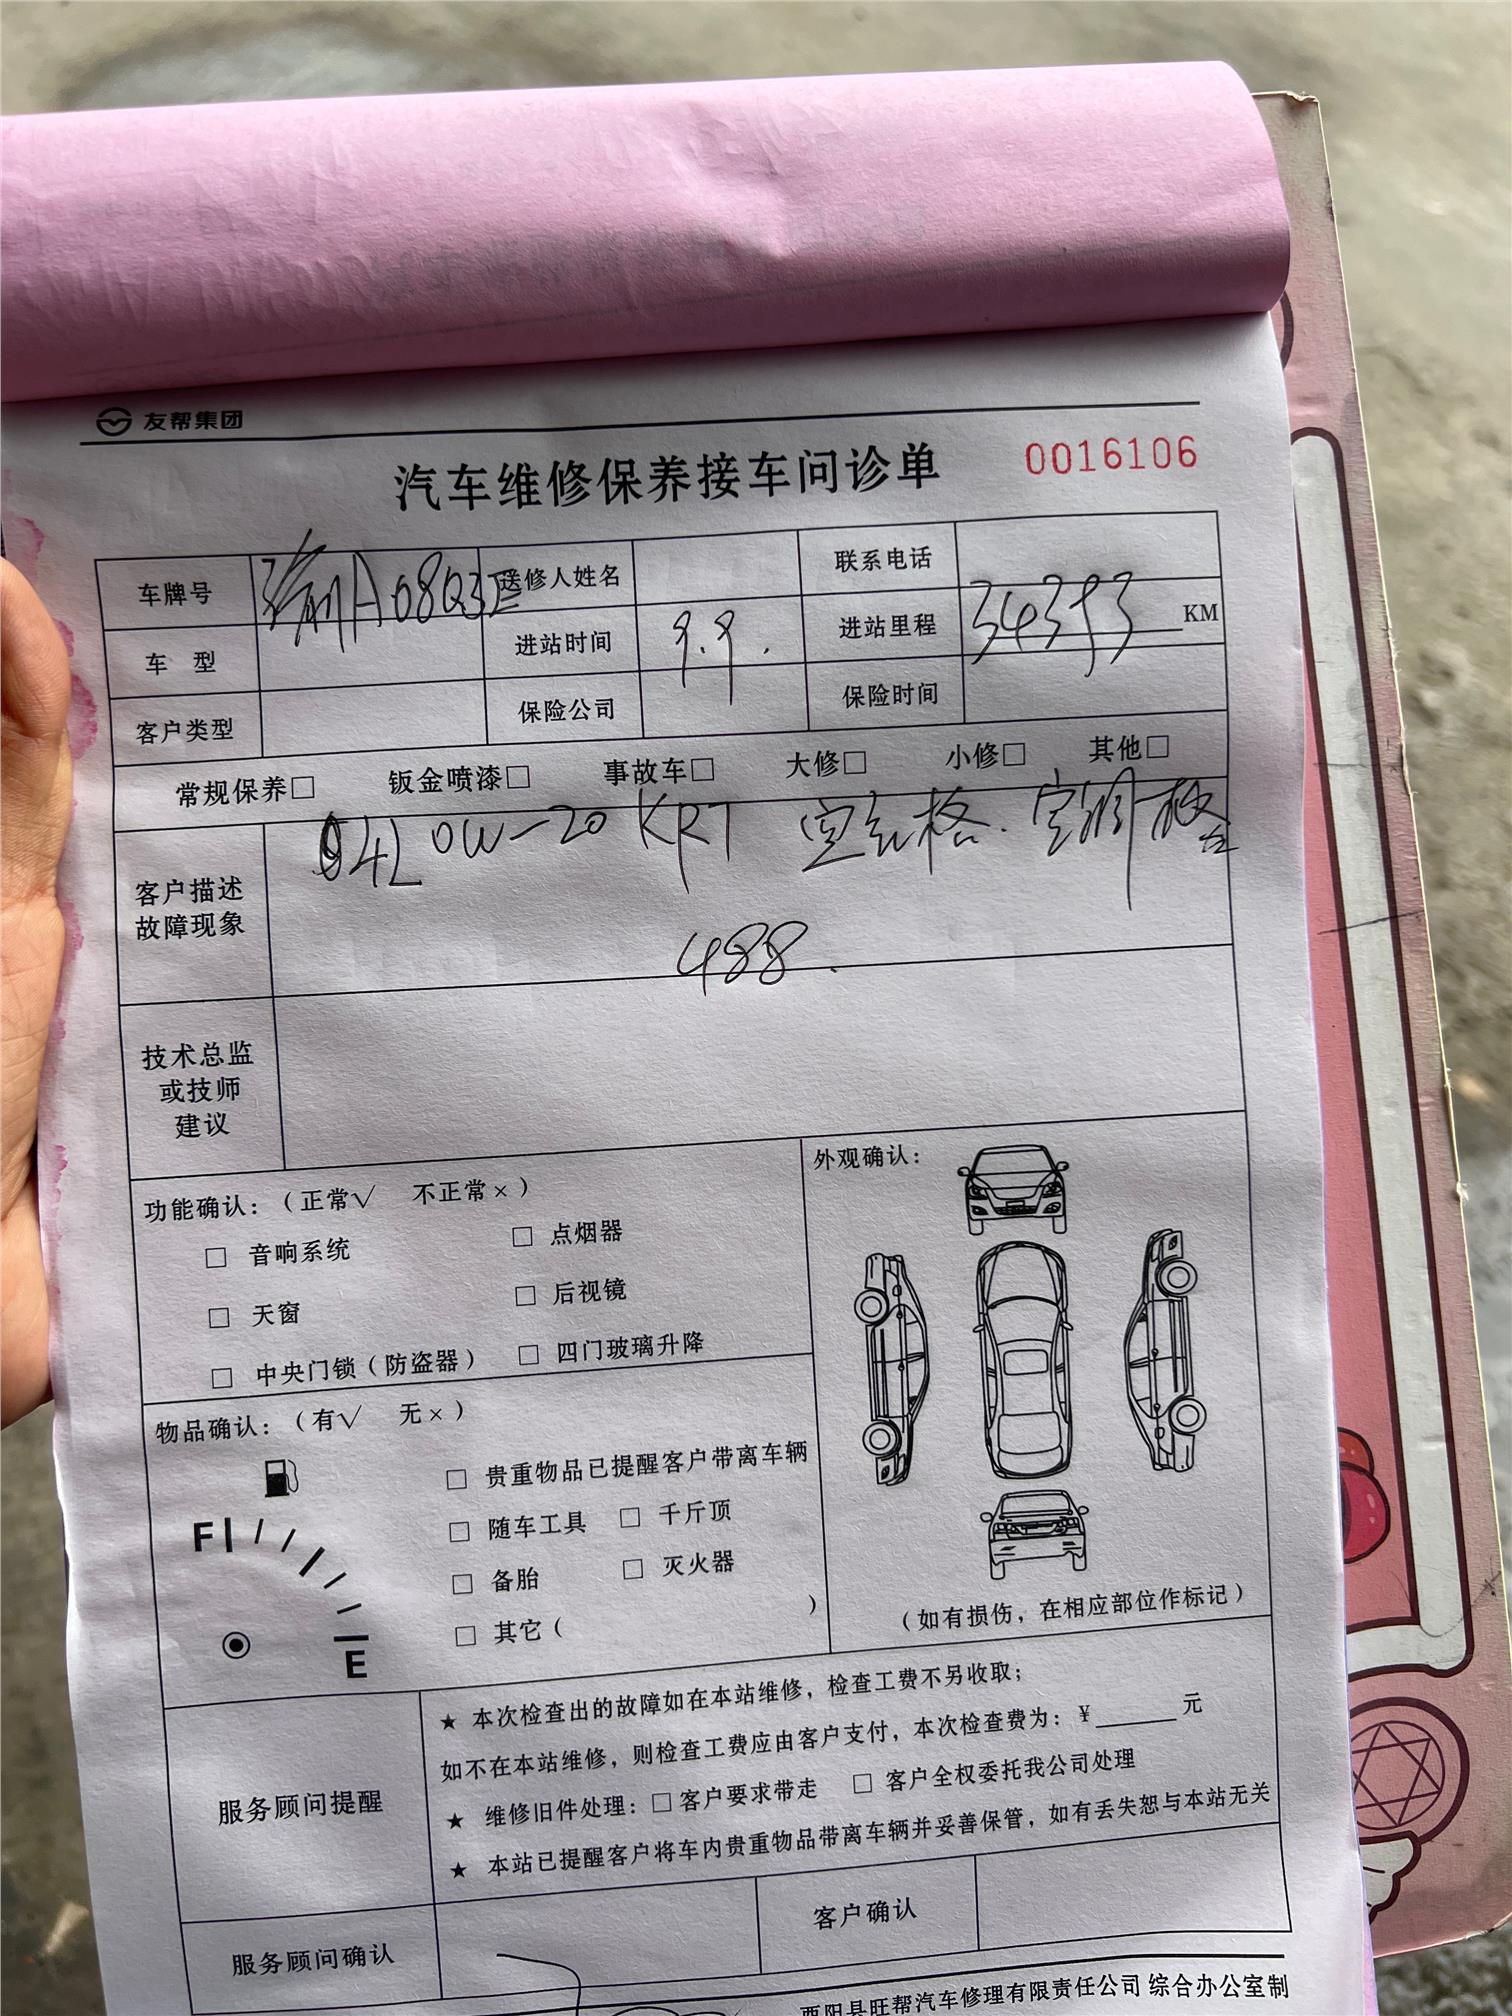 友帮集团
汽车维修保养接车问诊单 0016106
车牌号 A08Q3 送修人姓名 联系电话
车 型 进站时间 9.9. 进站里程 34353 KM
客户类型 保险公司 保险时间
常规保养□ 钣金喷漆□ 事故车□ 大修□ 小修□ 其他□
客户描述
故障现象
4L 0W-20 KRT 空气格. 空调格
488.
技术总监
或技师
建议
功能确认：（正常√ 不正常×）
□ 音响系统 □ 点烟器
□ 天窗 □ 后视镜
□ 中央门锁（防盗器） □ 四门玻璃升降
外观确认：
（如有损伤，在相应部位作标记）
物品确认：（有√ 无×）
F
E
□ 贵重物品已提醒客户带离车辆
□ 随车工具 □ 千斤顶
□ 备胎 □ 灭火器
□ 其它（ ）
服务顾问提醒
★ 本次检查出的故障如在本站维修，检查工费不另收取；
如不在本站维修，则检查工费应由客户支付，本次检查费为：¥______元
★ 维修旧件处理：□客户要求带走 □ 客户全权委托我公司处理
★ 本站已提醒客户将车内贵重物品带离车辆并妥善保管，如有丢失恕与本站无关
服务顾问确认 客户确认
酉阳县旺帮汽车修理有限责任公司 综合办公室制